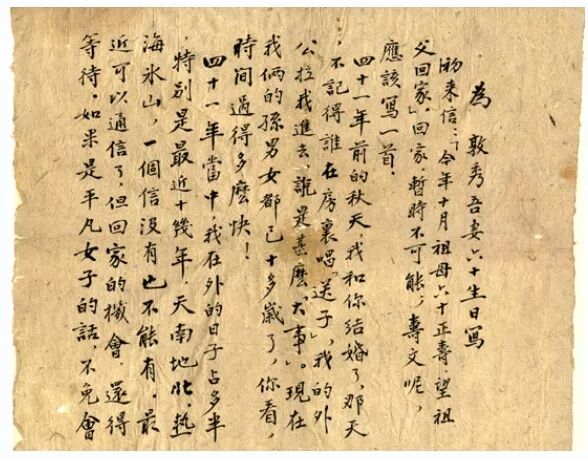 為 敦秀吾妻六十生日寫
来信:「今年十月祖母六十正壽,望祖
父回家」。回家,暫時不可能,壽文呢,
應該寫一首.
四十一年前的秋天,我和你結婚了,那天
,不記得誰在房裏唱「送子」,我的外
公拉我進去,說是甚麼「大事」。現在
我倆的孫男女都已十多歲了,你看,
時間過得多麽快!
四十一年當中,我在外的日子占多半
,特別是最近十幾年,天南地北,熱
海氷山,一個信没有也不能有。最
近可以通信了,但回家的機會,還得
等待。如果是平凡女子的話,不免會